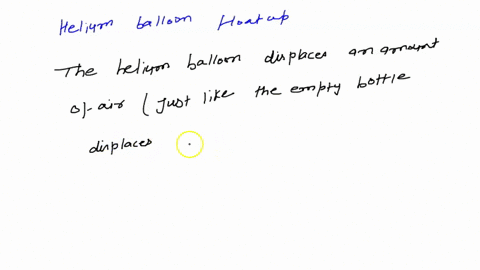 Helium balloon float up
The helium balloon displaces an amount
of air (just like the empty bottle
displaces